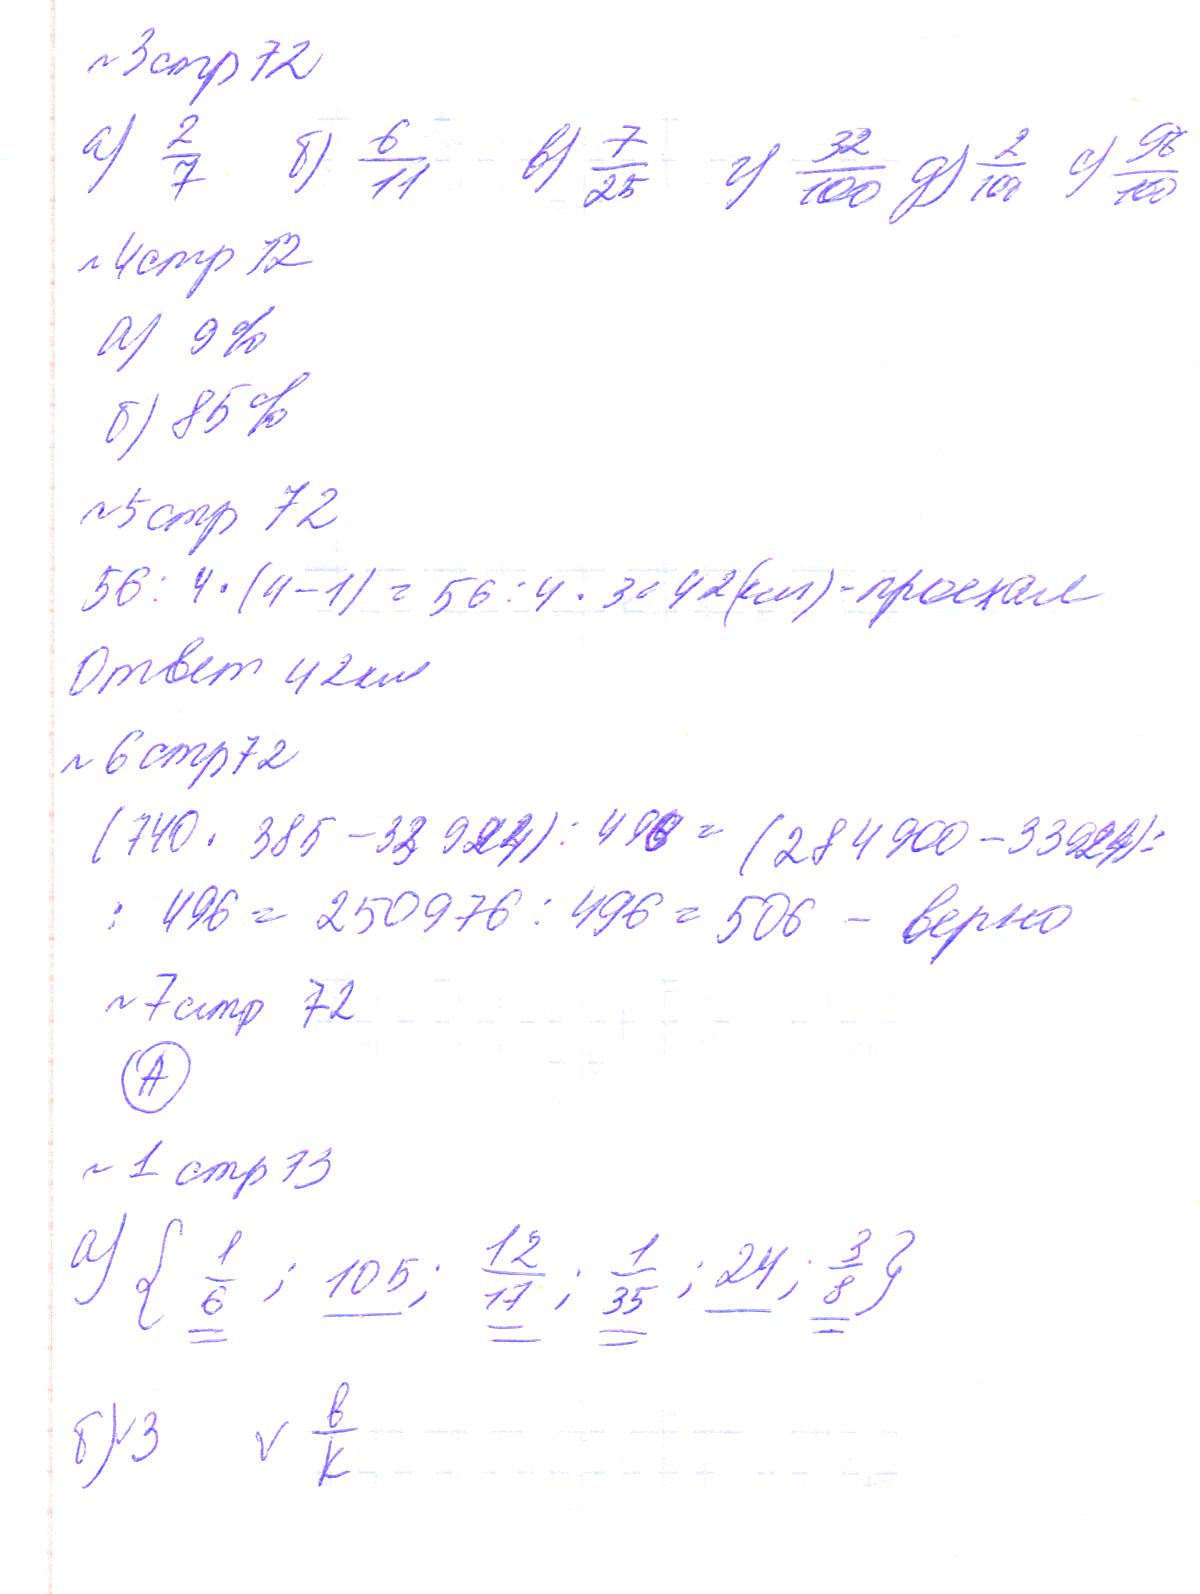 ~3стр 72
а) 2/7 б) 6/11 в) 7/25 г) 32/100 д) 2/100 е) 98/100
~4стр 72
а) 9%
б) 85%
~5стр 72
56 : 4 · (4 - 1) = 56 : 4 · 3 = 42(км) - проехал
Ответ 42км
~6стр72
(740 · 385 - 33 924) : 496 = (284900 - 33924) :
: 496 = 250976 : 496 = 506 - верно
~7стр 72
А
~1 стр 73
а) { 1/6 ; 105 ; 12/17 ; 1/35 ; 24 ; 3/8 }
б) √3 √ в/к